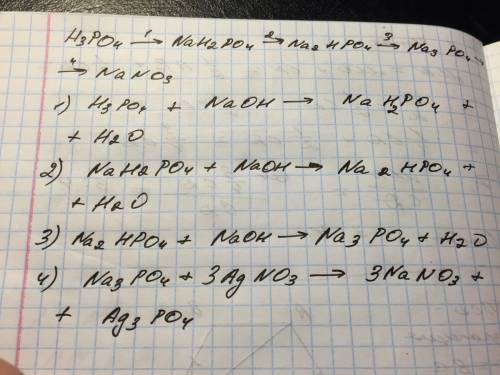 H₃PO₄ →¹ NaH₂PO₄ →² Na₂HPO₄ →³ Na₃PO₄ →
→⁴ NaNO₃
1) H₃PO₄ + NaOH → NaH₂PO₄ +
+ H₂O
2) NaH₂PO₄ + NaOH → Na₂HPO₄ +
+ H₂O
3) Na₂HPO₄ + NaOH → Na₃PO₄ + H₂O
4) Na₃PO₄ + 3AgNO₃ → 3NaNO₃ +
+ Ag₃PO₄